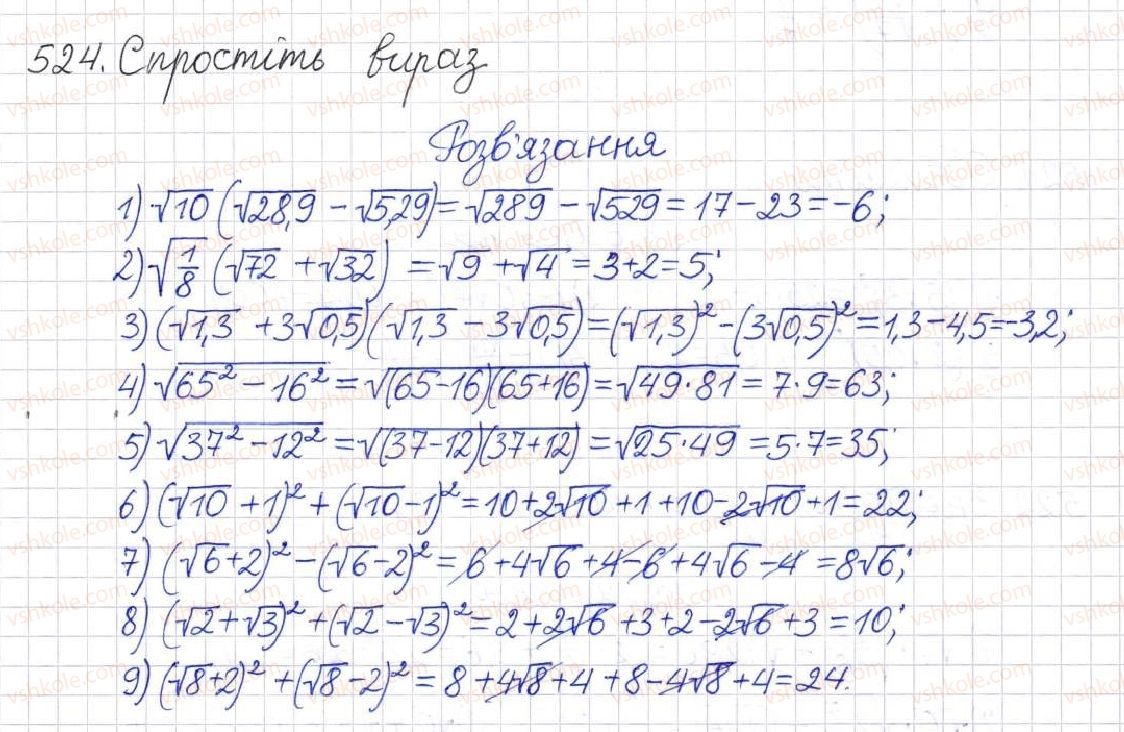 524. Спростіть вираз
Розв'язання
1) √10 (√28,9 - √5,29) = √289 - √529 = 17 - 23 = -6;
2) √(1/8) (√72 + √32) = √9 + √4 = 3 + 2 = 5;
3) (√1,3 + 3√0,5)(√1,3 - 3√0,5) = (√1,3)² - (3√0,5)² = 1,3 - 4,5 = -3,2;
4) √(65² - 16²) = √((65-16)(65+16)) = √(49·81) = 7·9 = 63;
5) √(37² - 12²) = √((37-12)(37+12)) = √(25·49) = 5·7 = 35;
6) (√10 + 1)² + (√10 - 1)² = 10 + 2√10 + 1 + 10 - 2√10 + 1 = 22;
7) (√6 + 2)² - (√6 - 2)² = 6 + 4√6 + 4 - 6 + 4√6 - 4 = 8√6;
8) (√2 + √3)² + (√2 - √3)² = 2 + 2√6 + 3 + 2 - 2√6 + 3 = 10;
9) (√8 + 2)² + (√8 - 2)² = 8 + 4√8 + 4 + 8 - 4√8 + 4 = 24.
vshkole.com